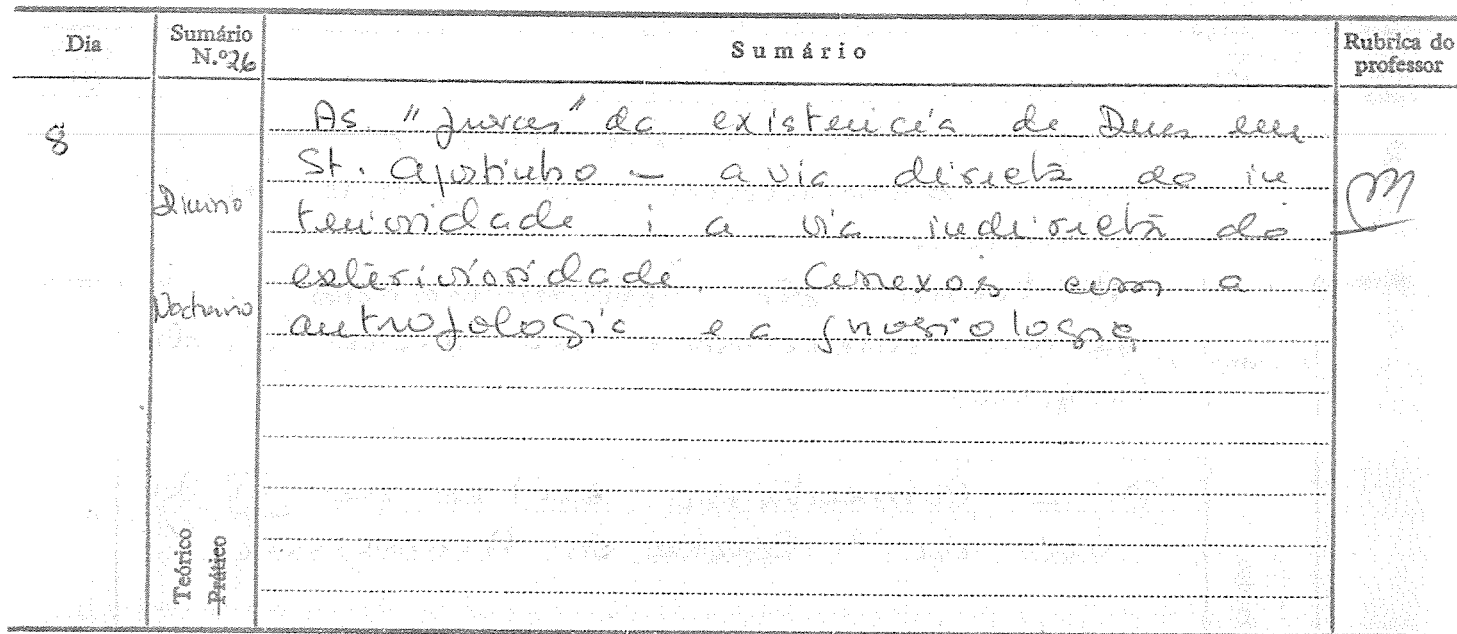 Dia
Sumário N.º 26
Sumário
Rubrica do professor
8
Diurno
Nocturno
As "provas" da existência de Deus em
St. Agostinho — a via directa da in
terioridade; a via indirecta da
exterioridade. Conexões com a
antropologia e a gnosiologia
Teórico
Prático